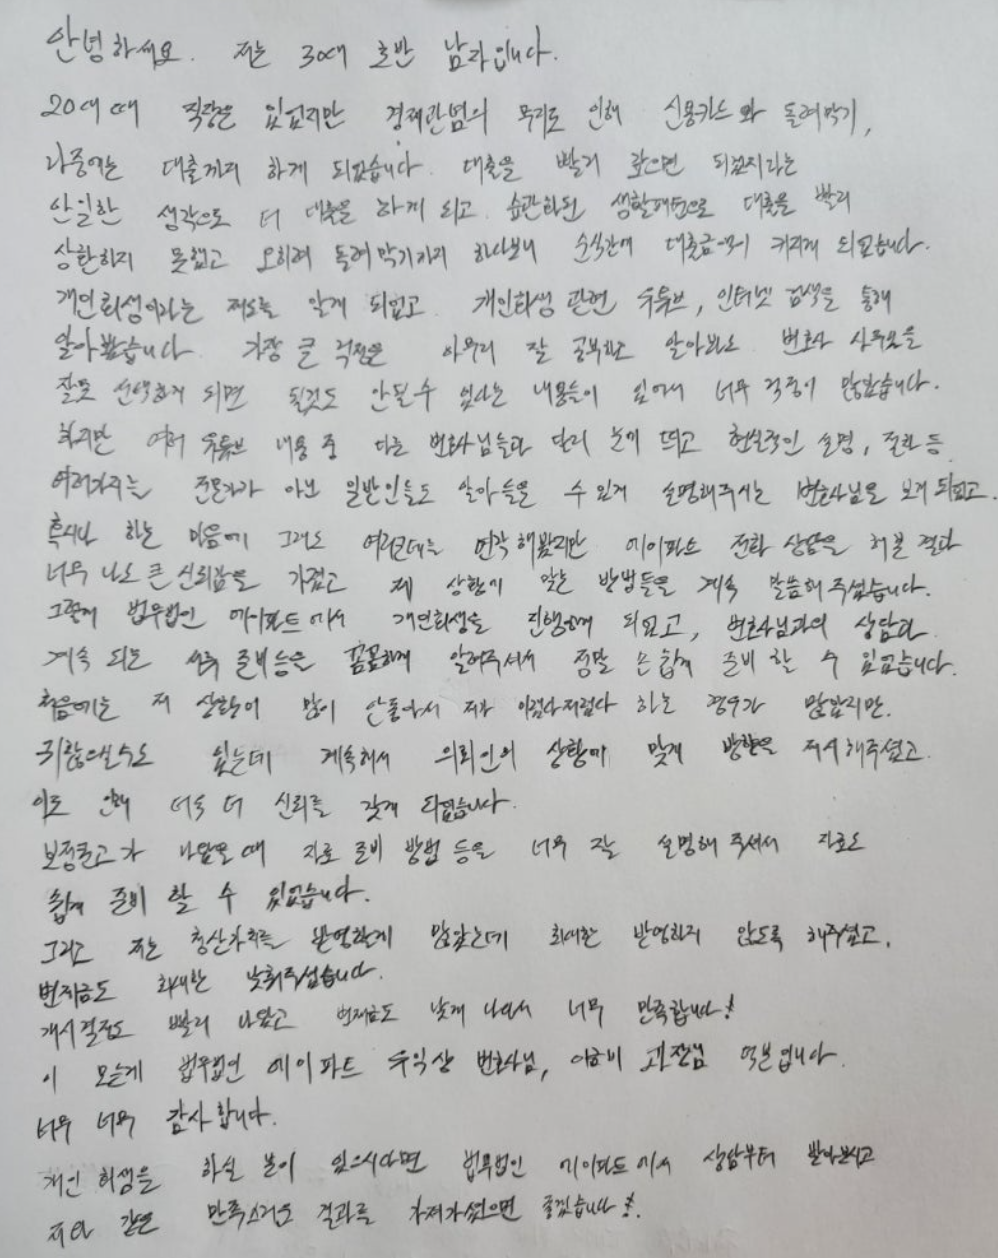 안녕하세요. 저는 30대 초반 남자입니다.
20대 때 직장은 있었지만 경제관념의 무지로 인해 신용카드와 돌려막기,
나중에는 대출까지 하게 되었습니다. 대출을 빨리 갚으면 되겠지라는
안일한 생각으로 더 대출을 하게 되고. 습관화된 생활패턴으로 대출을 빨리
상환하지 못했고 오히려 돌려막기까지 하다보니 순식간에 대출금액이 커지게 되었습니다.
개인회생이라는 제도를 알게 되었고. 개인회생 관련 유튜브, 인터넷 검색을 통해
알아봤습니다. 가장 큰 걱정은 아무리 잘 공부하고 알아봐도 변호사 사무실을
잘못 선택하게 되면 될것도 안될수 있다는 내용들이 있어서 너무 걱정이 많았습니다.
하지만 여러 유튜브 내용 중 다른 변호사님들과 달리 눈에 띄고 현실적인 설명, 전략 등
여러가지를 전문가가 아닌 일반인들도 알아들을 수 있게 설명해주시는 변호사님을 보게 되었고.
혹시나 하는 마음에 그래도 여러군데를 연락해봤지만 에이파트 전화 상담을 해본 결과
너무나도 큰 신뢰감을 가졌고 제 상황에 맞는 방법들을 계속 말씀해 주셨습니다.
그렇게 법무법인 에이파트에서 개인회생을 진행하게 되었고, 변호사님과의 상담과
계속 되는 서류 준비등을 꼼꼼하게 알려주셔서 정말 손쉽게 준비 할 수 있었습니다.
처음에는 제 상황이 많이 안좋아서 제가 이랬다저랬다 하는 경우가 많았지만.
귀찮으실수도 있는데 계속해서 의뢰인의 상황에 맞게 방향을 제시해주셨고.
이로 인해 더욱 더 신뢰를 갖게 되었습니다.
보정권고가 나왔을 때 자료 준비 방법 등을 너무 잘 설명해 주셔서 자료도
쉽게 준비 할 수 있었습니다.
그리고 저는 청산가치를 반영할게 많았는데 최대한 반영하지 않도록 해주셨고,
변제금도 최대한 낮춰주셨습니다.
개시결정도 빨리 나왔고 변제금도 낮게 나와서 너무 만족합니다!
이 모든게 법무법인 에이파트 유익상 변호사님, 이슬비 과장님 덕분입니다.
너무 너무 감사합니다.
개인 회생을 하실 분이 있으시다면 법무법인 에이파트에서 상담부터 받아보시고
저와 같은 만족스러운 결과를 가져가셨으면 좋겠습니다!.